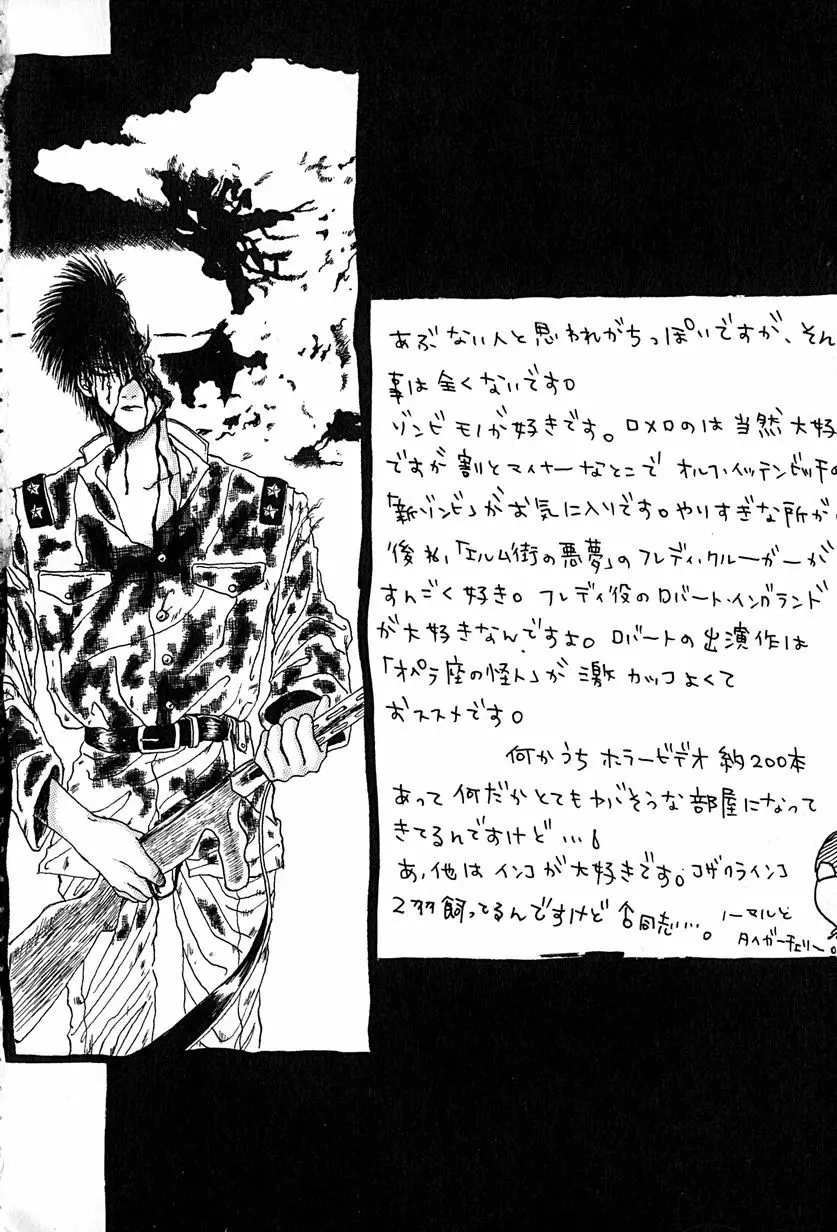 あぶない人と思われがちっぽいですが、そん
事は全くないです。
ゾンビモノが好きです。ロメロのは当然大好
ですが割とマイナーなとこでオルフ・イッテンビッチの
「新ゾンビ」がお気に入りです。やりすぎな所が
後ね、「エルム街の悪夢」のフレディ・クルーガーが
すんごく好き。フレディ役のロバート・イングランド
が大好きなんですよ。ロバートの出演作は
「オペラ座の怪人」が激カッコよくて
おススメです。
何かうちホラービデオ約200本
あって何だかとてもヤバそうな部屋になって
きてるんですけど…。
あ、他はインコが大好きです。コザクラインコ
2羽飼ってるんですけど 同志…。ノーマルと
タイガーチェリー。